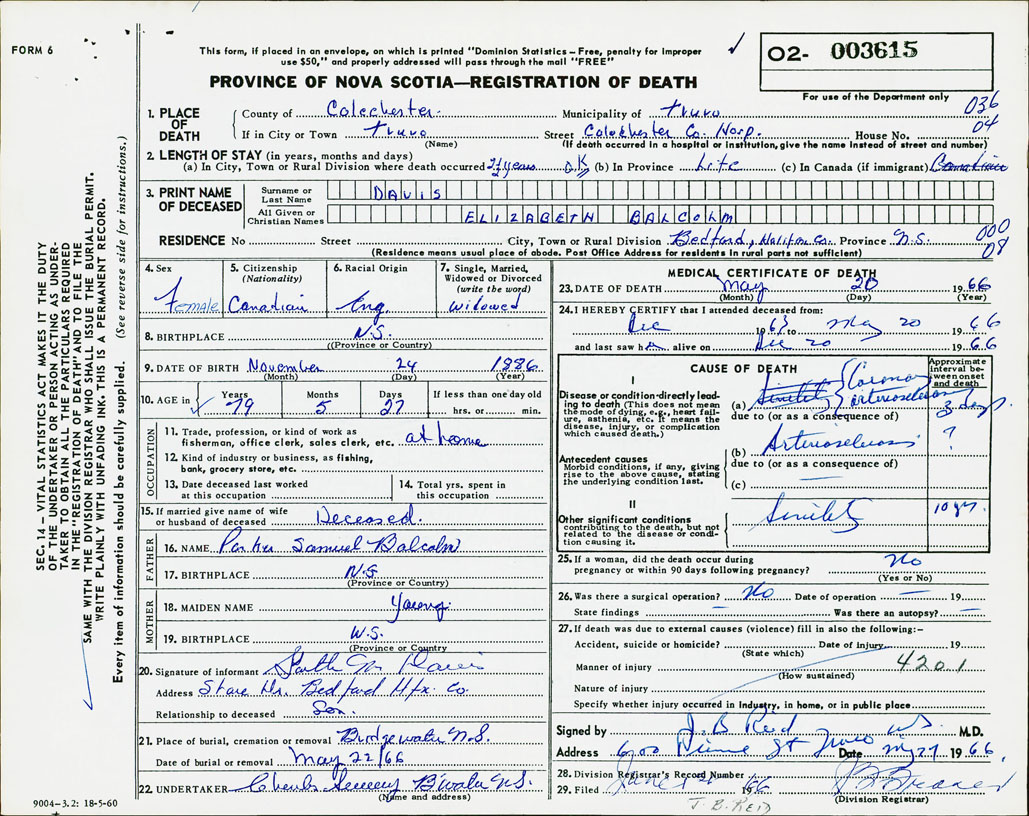 FORM 6
This form, if placed in an envelope, on which is printed "Dominion Statistics – Free, penalty for improper
use $50," and properly addressed will pass through the mail "FREE"
PROVINCE OF NOVA SCOTIA—REGISTRATION OF DEATH
O2- 003615
For use of the Department only
036
04
1. PLACE OF DEATH
County of Colchester Municipality of Truro
If in City or Town Truro Street Colchester Co. Hosp. House No.
(Name) (If death occurred in a hospital or institution, give the name instead of street and number)
2. LENGTH OF STAY (in years, months and days)
(a) In City, Town or Rural Division where death occurred 2½ years (b) In Province Life (c) In Canada (if immigrant) Canadian
3. PRINT NAME OF DECEASED
Surname or Last Name DAVIS
All Given or Christian Names ELIZABETH BALCOLM
000
08
RESIDENCE No Street City, Town or Rural Division Bedford, Halifax Co. Province N.S.
(Residence means usual place of abode. Post Office Address for residents in rural parts not sufficient)
4. Sex Female
5. Citizenship (Nationality) Canadian
6. Racial Origin Eng
7. Single, Married, Widowed or Divorced (write the word) Widowed
8. BIRTHPLACE N.S.
(Province or Country)
9. DATE OF BIRTH November 24 1886
(Month) (Day) (Year)
10. AGE in Years 79 Months 5 Days 27 If less than one day old hrs. or min.
OCCUPATION
11. Trade, profession, or kind of work as
fisherman, office clerk, sales clerk, etc. at home
12. Kind of industry or business, as fishing,
bank, grocery store, etc.
13. Date deceased last worked
at this occupation
14. Total yrs. spent in
this occupation
15. If married give name of wife
or husband of deceased Deceased.
FATHER
16. NAME Parker Samuel Balcolm
17. BIRTHPLACE N.S.
(Province or Country)
MOTHER
18. MAIDEN NAME Young
19. BIRTHPLACE N.S.
(Province or Country)
20. Signature of informant Davis
Address Shore Dr. Bedford Hfx. Co.
Relationship to deceased Son.
21. Place of burial, cremation or removal Bridgewater N.S.
Date of burial or removal May 22/66
22. UNDERTAKER B'water N.S.
(Name and address)
MEDICAL CERTIFICATE OF DEATH
23. DATE OF DEATH May 20 1966
(Month) (Day) (Year)
24. I HEREBY CERTIFY that I attended deceased from:
Dec 1963 to May 20 1966
and last saw her alive on Dec 20 1966
CAUSE OF DEATH
Approximate interval between onset and death
I
Disease or condition directly leading to death (This does not mean the mode of dying, e.g., heart failure, asthenia, etc. It means the disease, injury, or complication which caused death.)
(a) Senility Coronary arteriosclerosis 3 days
due to (or as a consequence of)
Antecedent causes
Morbid conditions, if any, giving rise to the above cause, stating the underlying condition last.
(b) Arteriosclerosis ?
due to (or as a consequence of)
(c)
II
Other significant conditions contributing to the death, but not related to the disease or condition causing it.
Senility 10 yrs.
25. If a woman, did the death occur during
pregnancy or within 90 days following pregnancy? No
(Yes or No)
26. Was there a surgical operation? No Date of operation 19
State findings Was there an autopsy?
27. If death was due to external causes (violence) fill in also the following:–
Accident, suicide or homicide? Date of injury 19
(State which)
Manner of injury 4201
(How sustained)
Nature of injury
Specify whether injury occurred in Industry, in home, or in public place
Signed by J. B Reid M.D.
Address St Truro Date May 27 1966
28. Division Registrar's Record Number
29. Filed June 1966
(Division Registrar)
J. B. REID
SEC. 14 – VITAL STATISTICS ACT MAKES IT THE DUTY
OF THE UNDERTAKER OR PERSON ACTING AS UNDER-
TAKER TO OBTAIN ALL THE PARTICULARS REQUIRED
IN THE "REGISTRATION OF DEATH" AND TO FILE THE
SAME WITH THE DIVISION REGISTRAR WHO SHALL ISSUE THE BURIAL PERMIT.
WRITE PLAINLY WITH UNFADING INK. THIS IS A PERMANENT RECORD.
Every item of information should be carefully supplied. (See reverse side for instructions.)
9004–3.2: 18-5-60